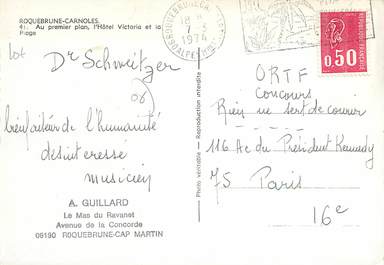 ROQUEBRUNE-CARNOLES.
4: Au premier plan, l'Hôtel Victoria et la
Plage
lot
Dr Schweitzer
bienfaiteur de l'humanité
désinteressé
musicien
A. GUILLARD
Le Mas du Ravanet
Avenue de la Concorde
06190 ROQUEBRUNE-CAP MARTIN
Photo véritable - Reproduction interdite
18 H
7-
1974
0,50
ORTF
Concours
Rien ne sert de courir
116 Ae du Président Kennedy
75 Paris
16e